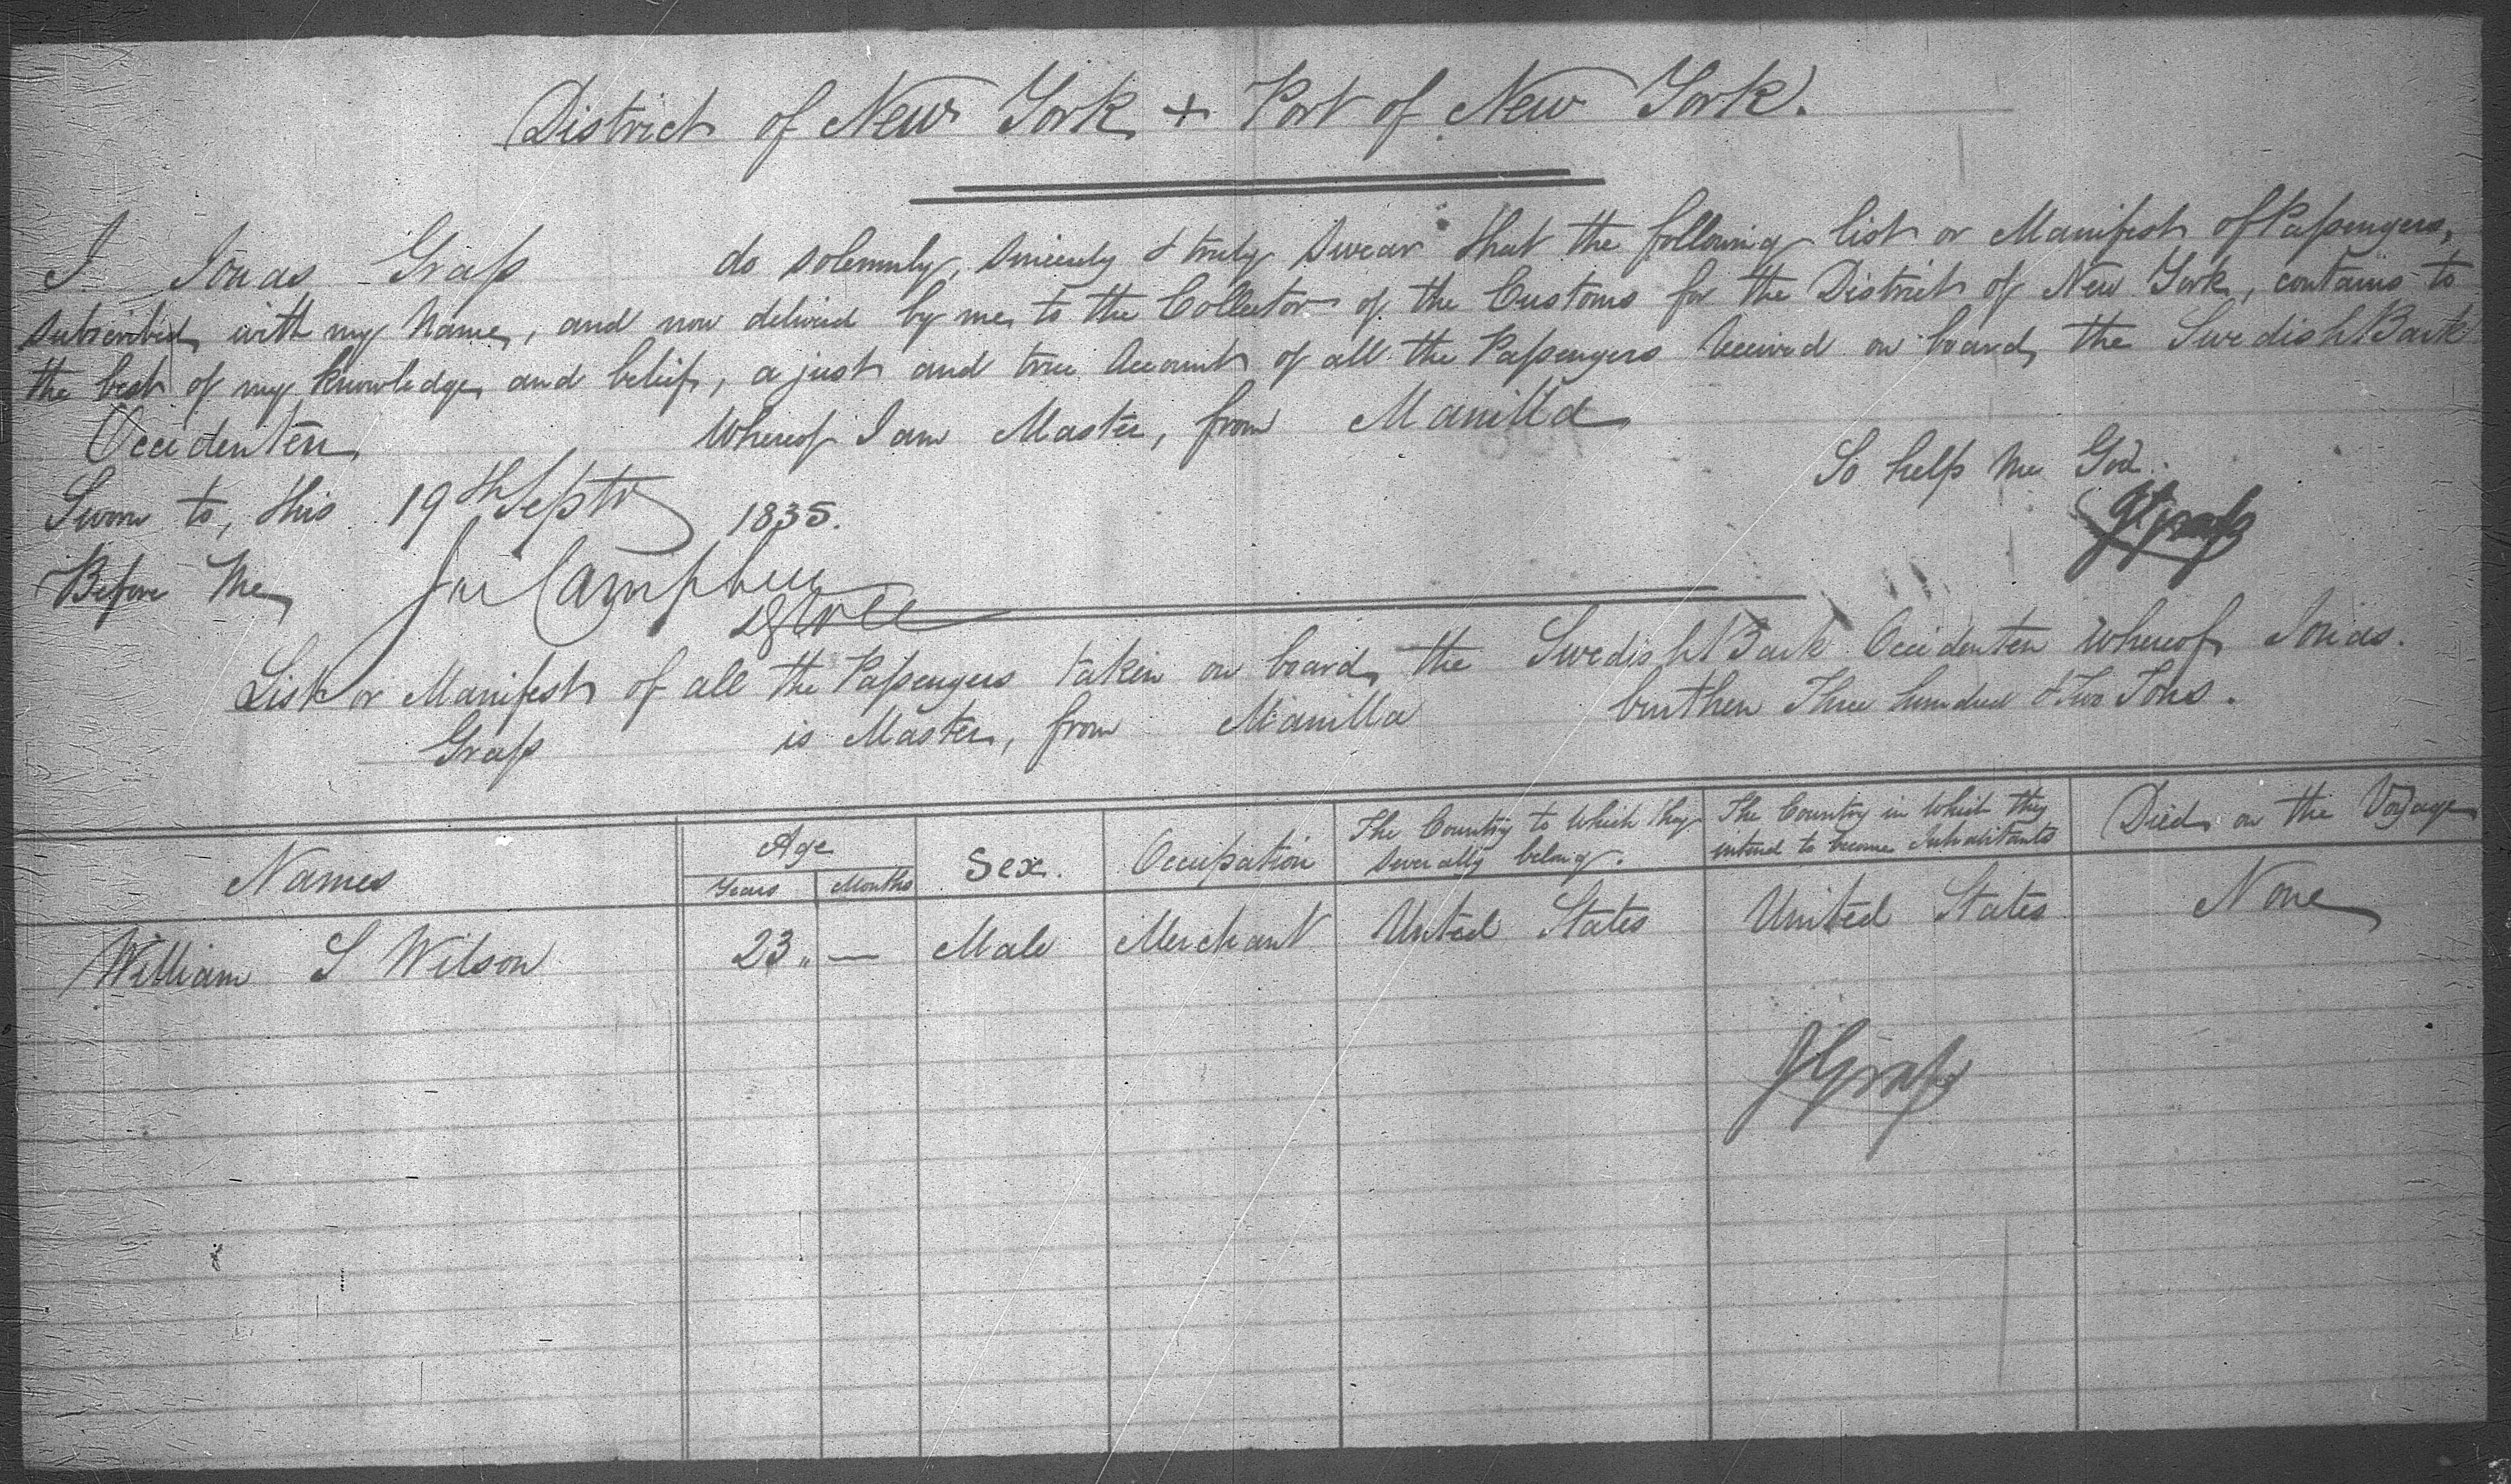 District of New York & Port of New York.
I Jonas Grass do solemnly, sincerely & truly swear that the following list or Manifest of Passengers,
subscribed with my Name, and now delivered by me to the Collector of the Customs for the District of New York, contains to
the best of my knowledge and belief, a just and true Account of all the Passengers Received on board the Swedish Bark
Occidenten whereof I am Master, from Manilla
So help me God.
Sworn to, this 19th Septr 1835.
JGrass
Before Me
List or Manifest of all the Passengers taken on board the Swedish Bark Occidenten whereof Jonas
Grass is Master, from Manilla burthen Three hundred & Two Tons.
Names Age Years Months Sex. Occupation The Country to Which they severally belong. The Country in Which they intend to become Inhabitants Died on the Voyage
William S Wilson 23 " — Male Merchant United States United States None
JGrass